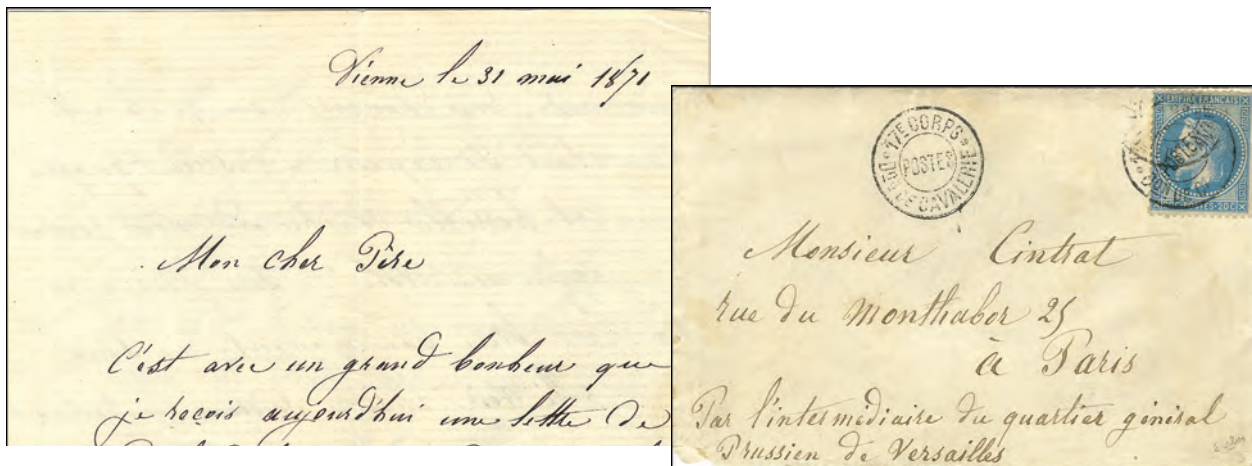 Vienne le 31 mai 1871
Mon cher Père
C'est avec un grand bonheur que
je reçois aujourd'hui une lettre de
17E CORPS
POSTES
DON DE CAVALERIE
EMPIRE FRANCAIS
Monsieur Cintrat
rue du Monthabor 25
à Paris
Par l'intermédiaire du quartier général
Prussien de Versailles